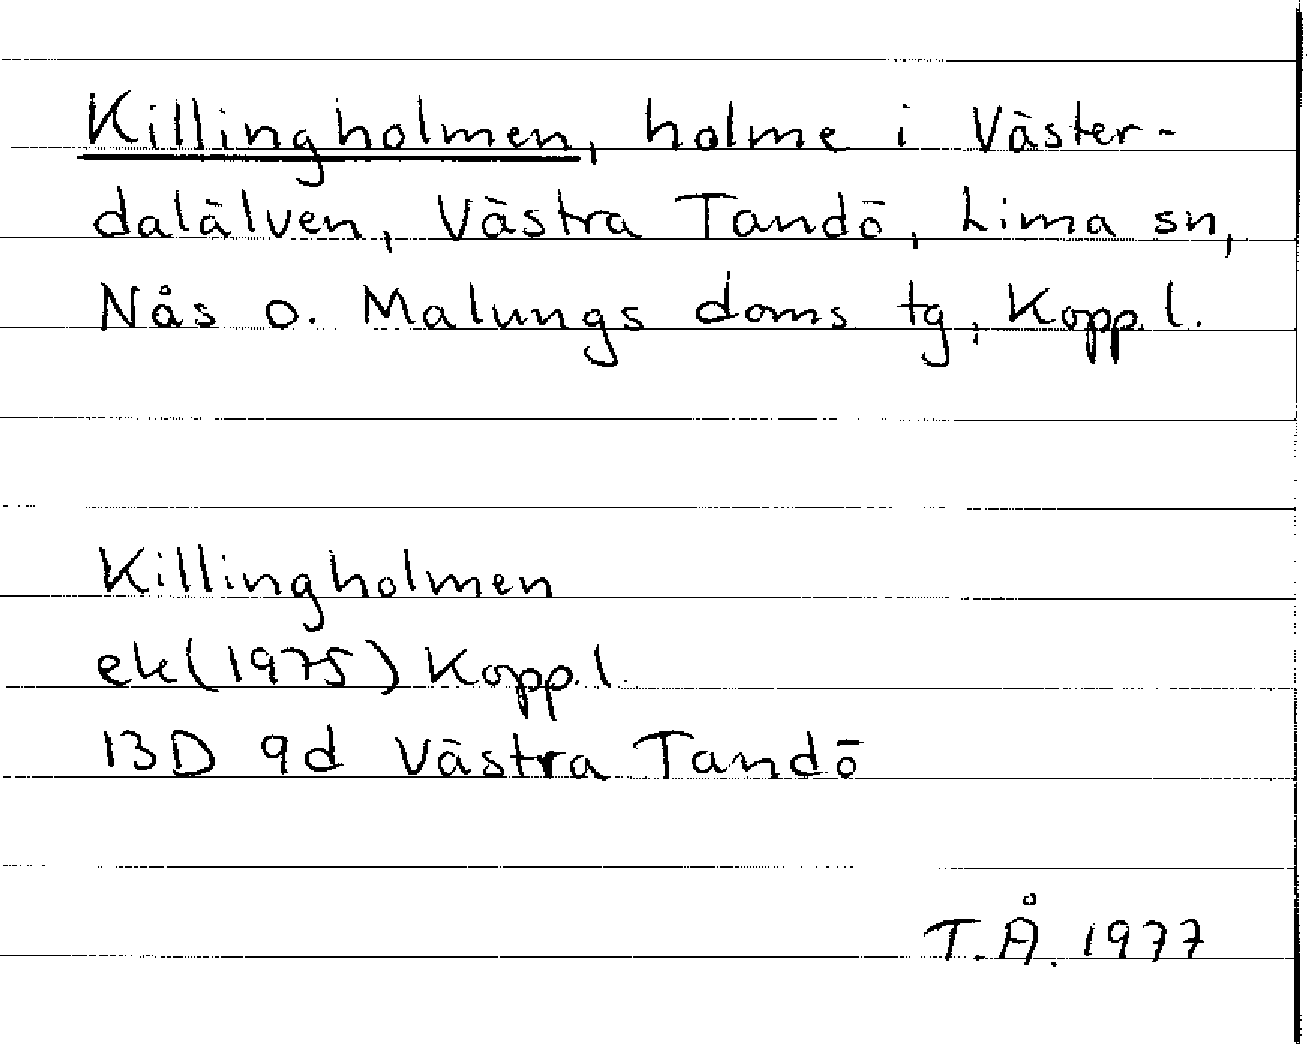 Killingholmen, holme i Väster-
dalälven, Västra Tandö, Lima sn,
Nås o. Malungs doms tg, Kopp. l.
Killingholmen
ek (1975) Kopp. l.
13D 9d Västra Tandö
T.Å. 1977